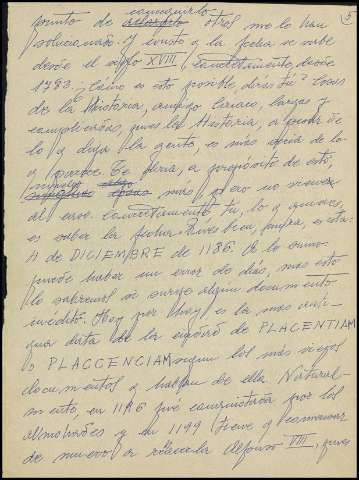 3
comenzarlo
punto de otros me lo han
solucionado. Y cuanto a la fecha se sabe
desde el siglo XVIII, concretamente, desde
1783. ¿Cómo es esto posible, dirás tú? Cosas
de la Historia, amigo, largas y
complicadas, pues la Historia, a pesar de
lo q dice la gente, es más de lo
q parece. Te diría, a propósito de esto,
más, pero no
al caso. Concretamente tú, lo q quieres,
es saber la fecha. Pues bien, mira, es esta:
4 de DICIEMBRE de 1186. A lo sumo
puede haber un error de días, mas esto
lo sabremos si surge algún documento
inédito. Hoy por hoy es la más anti-
gua data de la de PLACENTIAM
o PLACCENCIAM según los más viejos
documentos q hablan de ella. Natural-
mente, en 1196 fué conquistada por los
almohades y en 1199 tuvo q comenzar
de nuevo a Alfonso VIII, pues